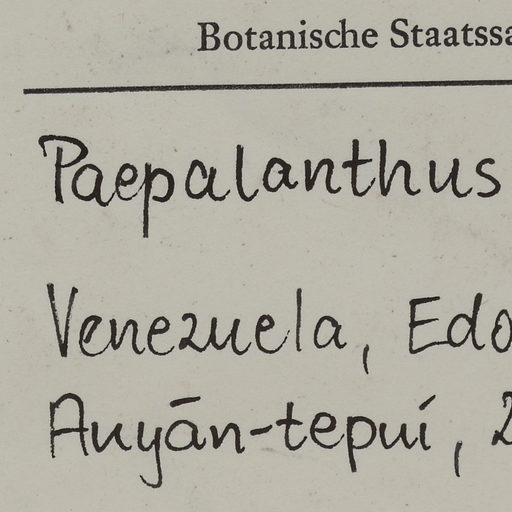 Botanische Staatssa
Paepalanthus
Venezuela, Edo
Auyān-tepuí, 2